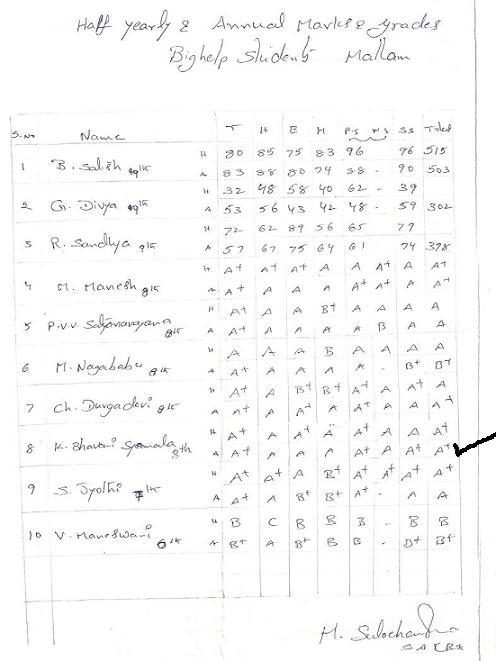 Half yearly & Annual Marks & grades
Bighelp Students Mallam
S.No Name T H E M P.S N.S SS Total
H 80 85 75 83 96 96 515
1 B. Satish 9th A 83 88 80 74 88 - 90 503
H 32 48 58 40 62 - 39
2 G. Divya 9th A 53 56 43 42 48 - 59 302
H 72 62 89 56 65 79
3 R. Sandhya 9th A 57 67 75 64 61 74 398
H A+ A+ A+ A A A+ A A+
4 M. Manesh 8th A A+ A A A A+ A+ A A+
H A+ A A B+ A A A A
5 P.V.V. Satyanarayana 8th A A+ A A A A B A A
H A A A B A A A A
6 M. Nagababu 8th A A+ A A A A - B+ B+
H A+ A B+ B+ A A A+ A
7 Ch. Durgadevi 8th A A+ A A+ A A A A A+
H A+ A A A A+ A A A+
8 K. Bhavani Syamala 8th A A+ A A A A+ A A+ A+
H A+ A+ A B+ A+ A A+ A+
9 S. Jyothi 7th A A+ A B+ B+ A+ - A A
H B C B B B - B B
10 V. Maneswari 6th A B+ A B+ B B - B+ B+